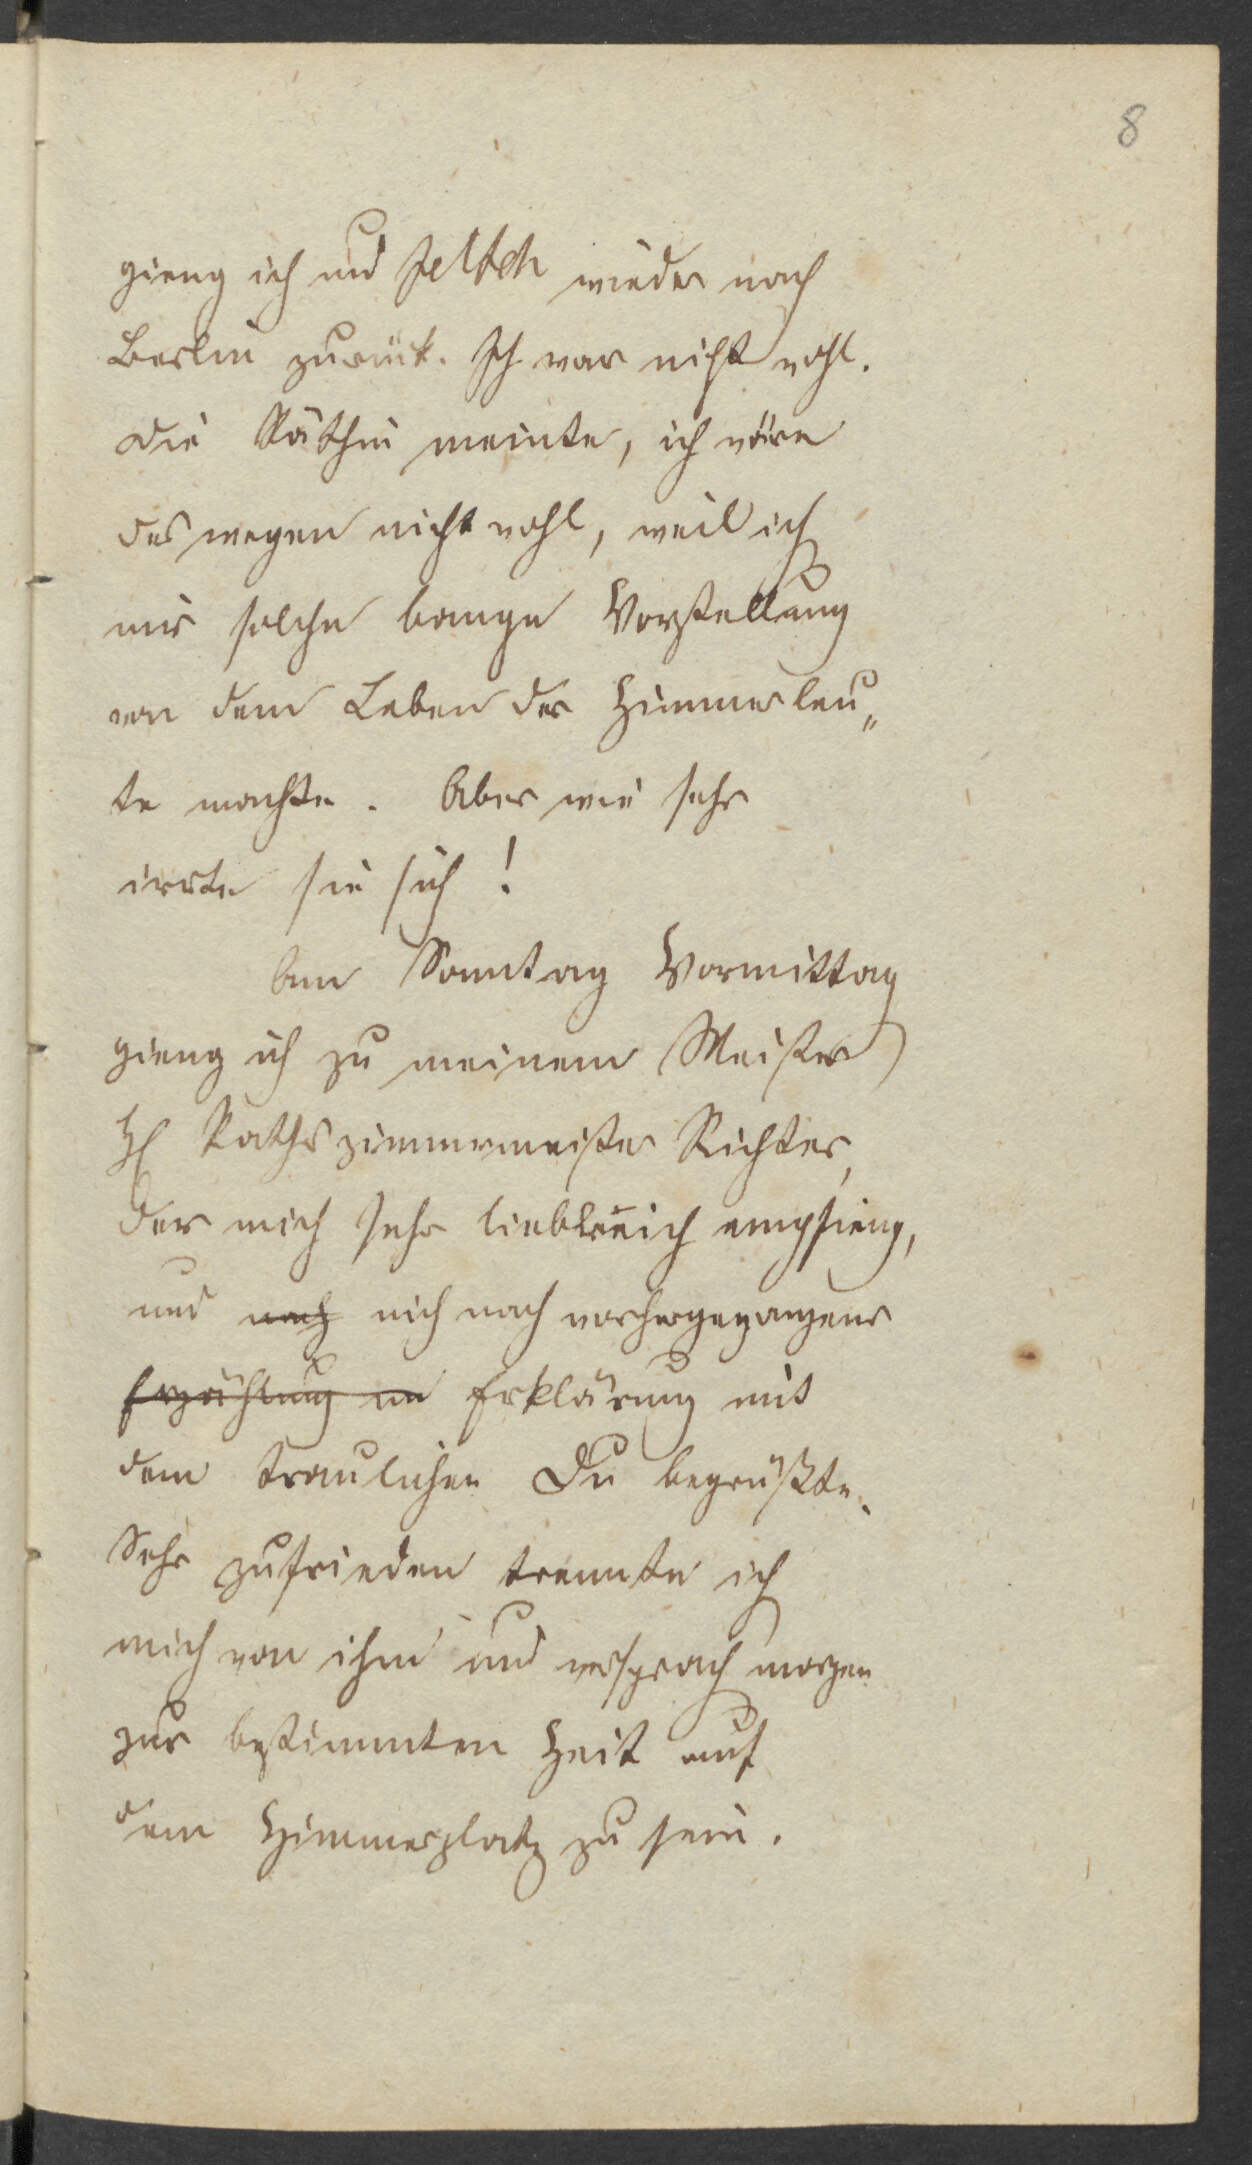 8
gieng ich und Jeltsch wieder nach
Berlin zurück. Ich war nicht wohl.
Die Räthin meinte, ich wäre
deswegen nicht wohl, weil ich
mir solche bange Vorstellung
von dem Leben der Zimmerleu„
te machte. Aber wie sehr
irrte sie sich!
Am Sonntag Vormittag
gieng ich zu meinem Meister
H Rathszimmermeister Richter,
der mich sehr liebreich empfieng,
und nach mich nach vorhergegangener
Erzählung un Erklärung mit
dem traulichen Du begrüßte.
Sehr zufrieden trennte ich
mich von ihm und versprach morgen
zur bestimmten Zeit auf
dem Zimmerplatz zu sein.